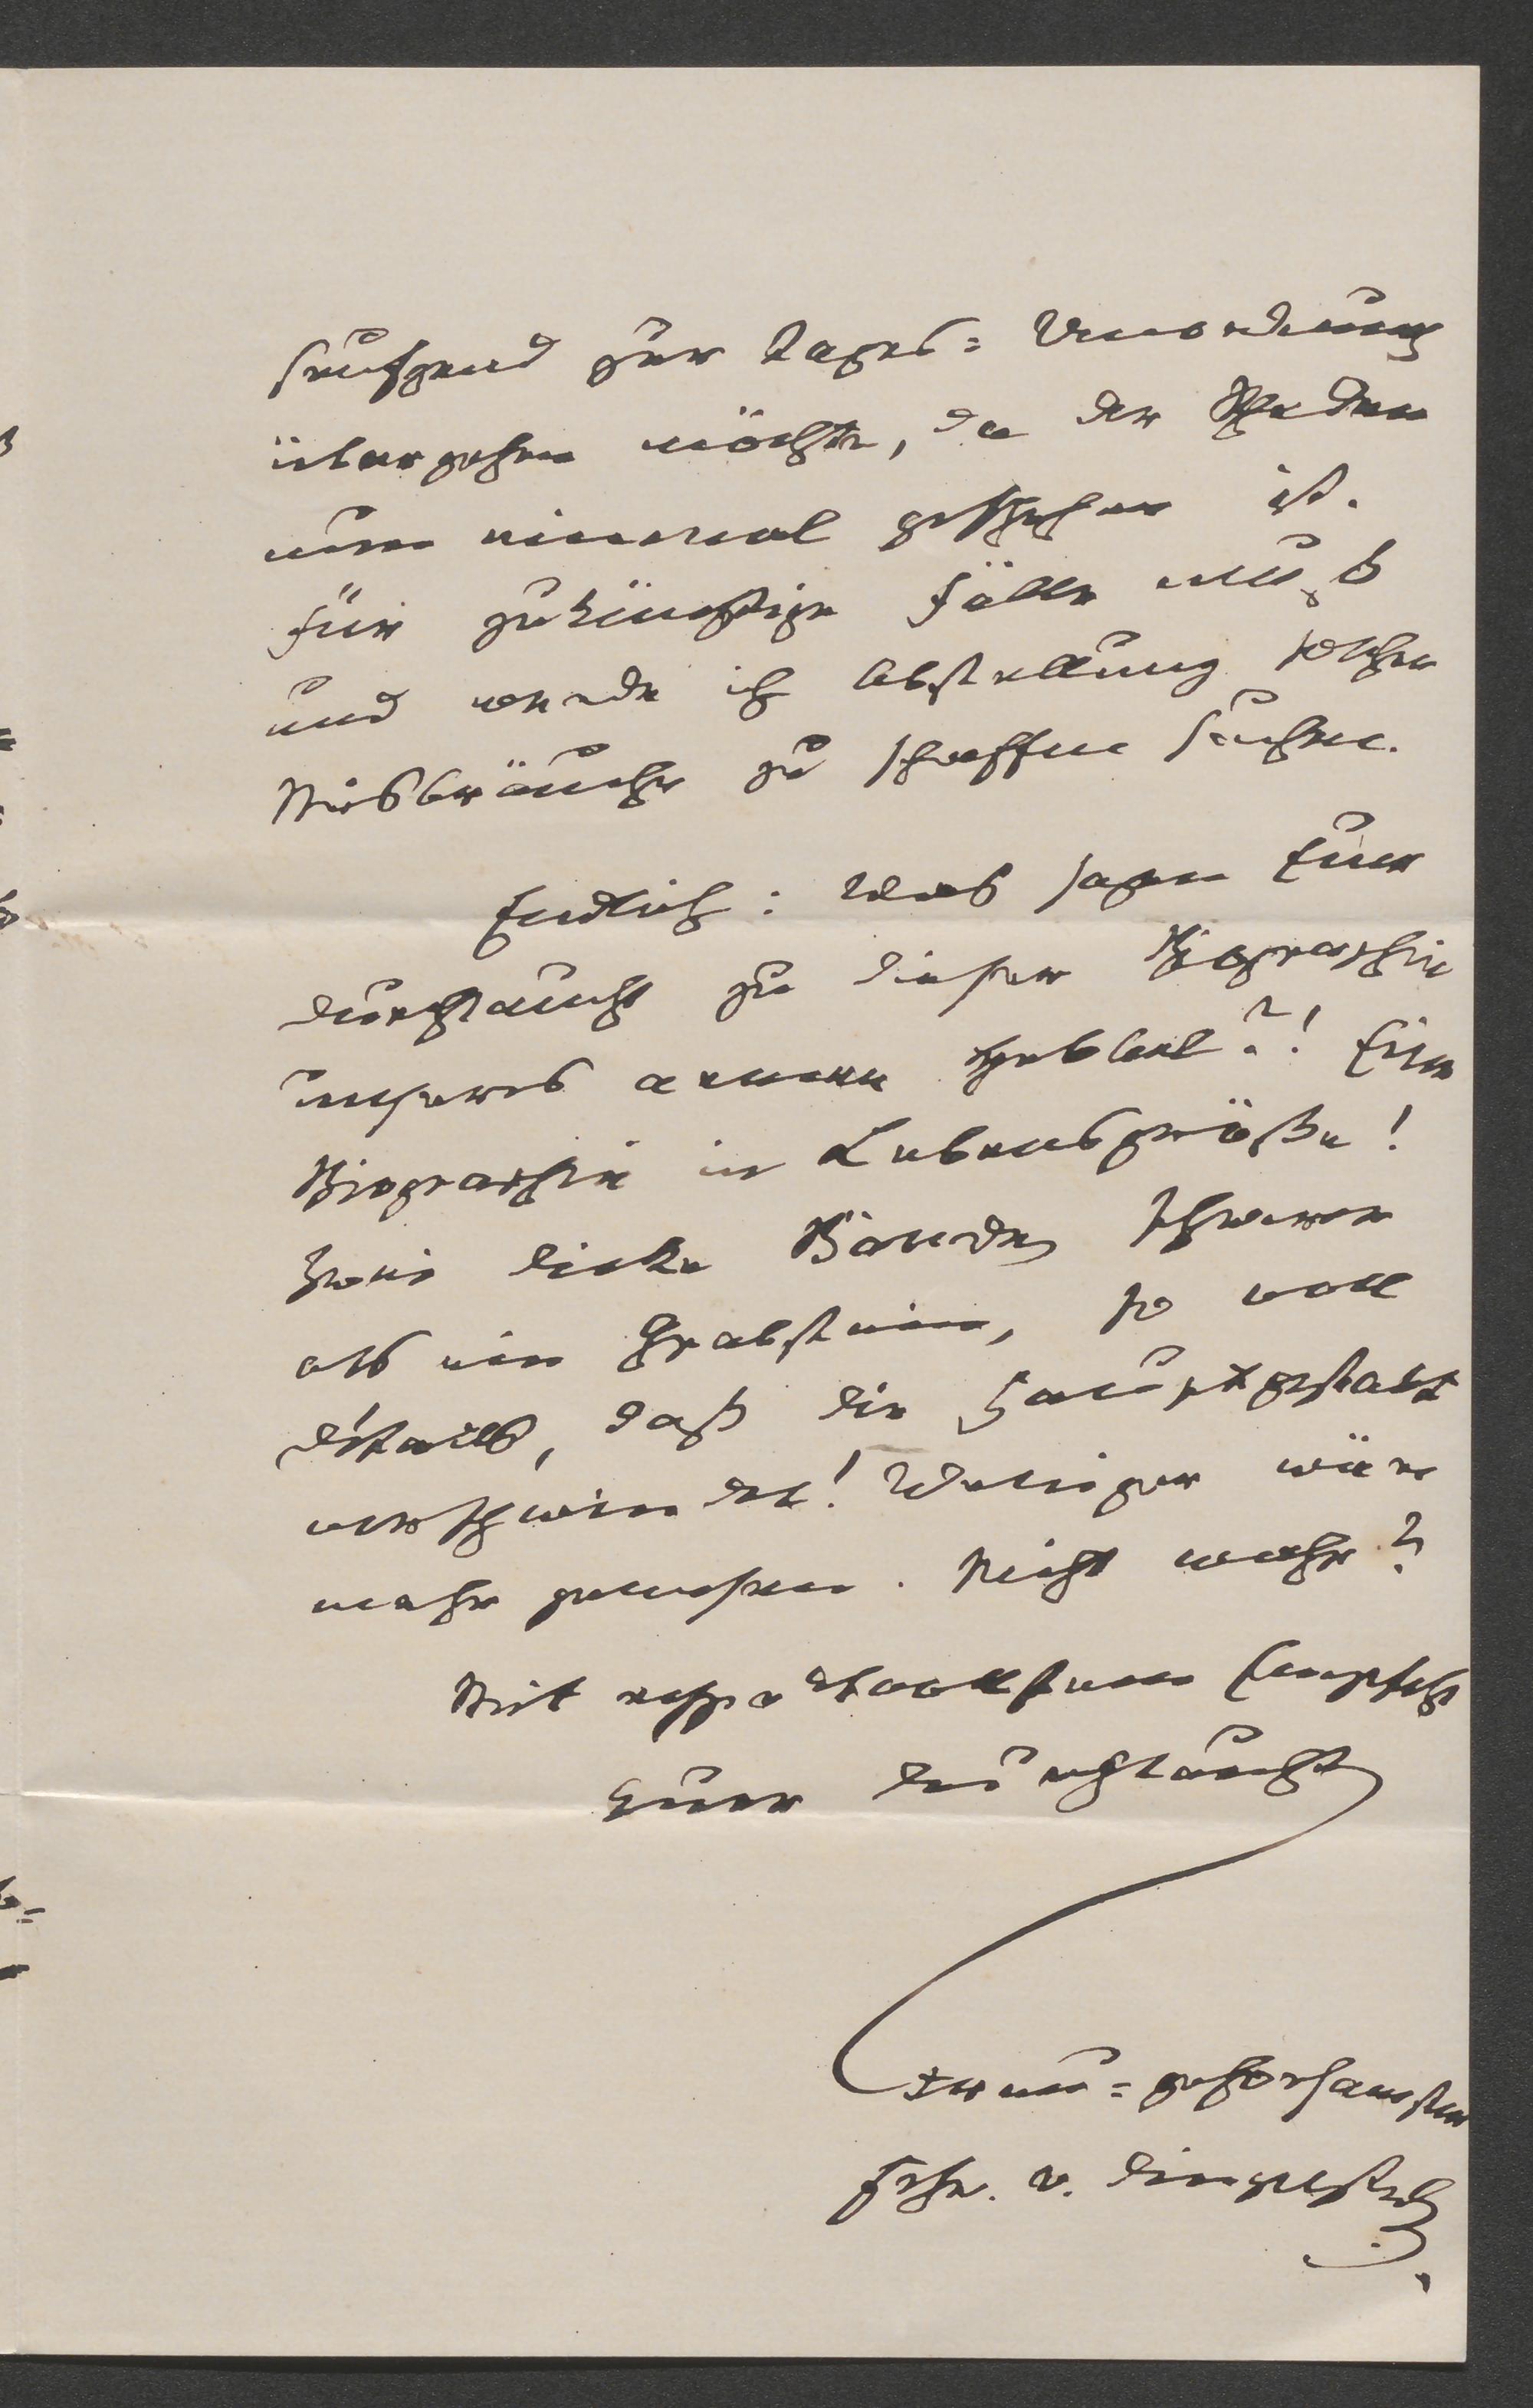 seufzend zur Tages= Unordnung
übergehen möchte, da der Schaden
nun einmal geschehen ist.
Für zukünftige Fälle muß
und werde ich Abstellung solcher
Misbräuche zu schaffen suchen.
Endlich: Was sagen Euer
Durchlaucht zu dieser Biographie
unseres armen Hebbel?! Eine
Biographie in Lebensgröße!
Zwei dicke Bände, schwerer
als ein Grabstein, so voll
Détails, daß die Hauptgestalt
verschwindet! Weniger wäre
mehr gewesen. Nicht wahr?
Mit respectvollstem Empfehl
Euer Durchlaucht
treu=gehorsamster
Frhr. v. Dingelstedt